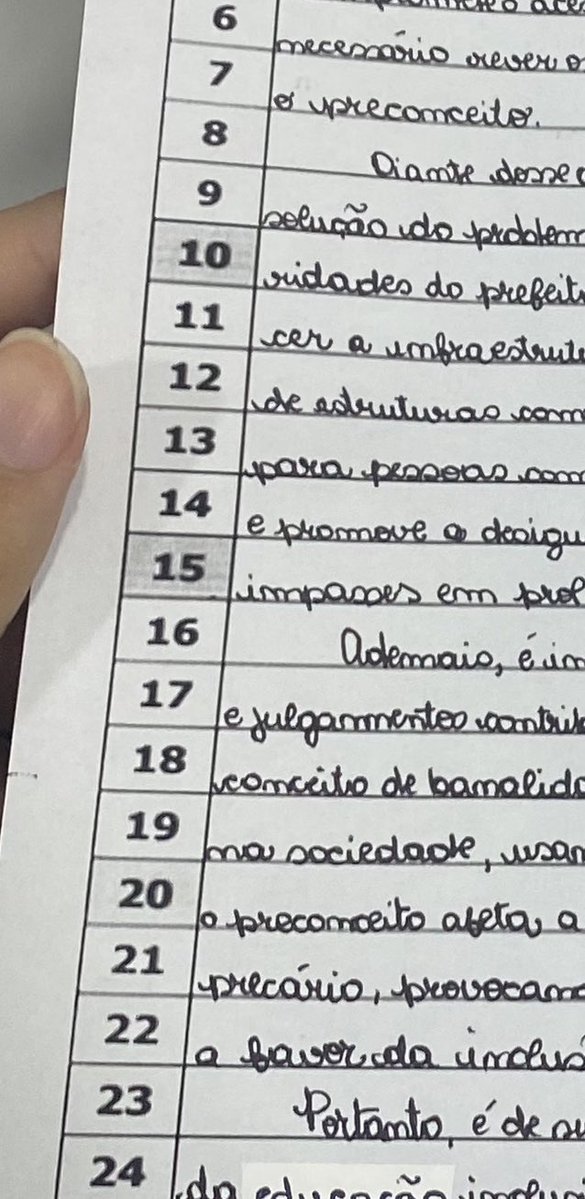 6
7 necessário rever o
8 o preconceito.
9 Diante desse
10 solução do problem
11 ridades do prefeit
12 cer a infraestrut
13 de estruturas com
14 para pessoas com
15 e promove a desigu
16 impasses em prol
17 Ademais, é im
18 e julgamentos contrib
19 conceito de banalid
20 na sociedade, usan
21 o preconceito afeta, a
22 precário, provocan
23 a favor da inclus
24 Portanto, é de su
da educação inclu